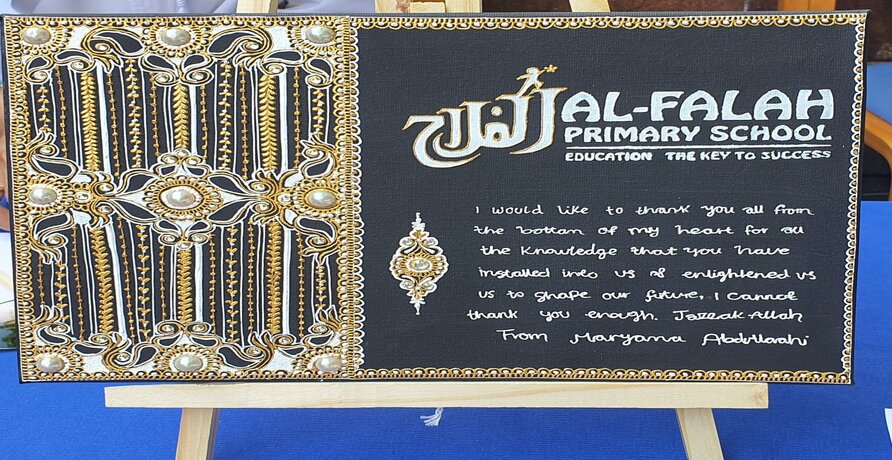 الفلاح
AL-FALAH
PRIMARY SCHOOL
EDUCATION THE KEY TO SUCCESS
I would like to thank you all from
the bottom of my heart for all
the knowledge that you have
installed into us & enlightened us
us to shape our future, I cannot
thank you enough. Jazzak-Allah
From Maryama Abdullahi